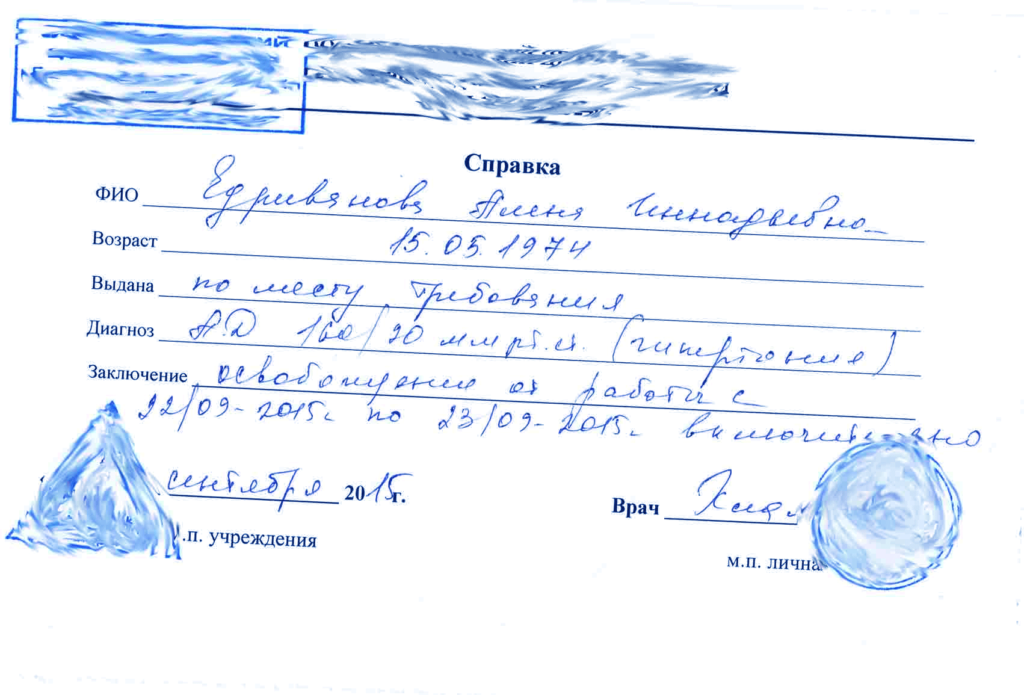 Справка
ФИО Едривянова Алена Иннадьевна
Возраст 15.05.1974
Выдана по месту требования
Диагноз А.Д 160/90 мм рт.ст. (гипертония)
Заключение освобождение от работы с
22/09-2015г по 23/09-2015г. включительно
сентября 2015г.
Врач
.п. учреждения
м.п. лична